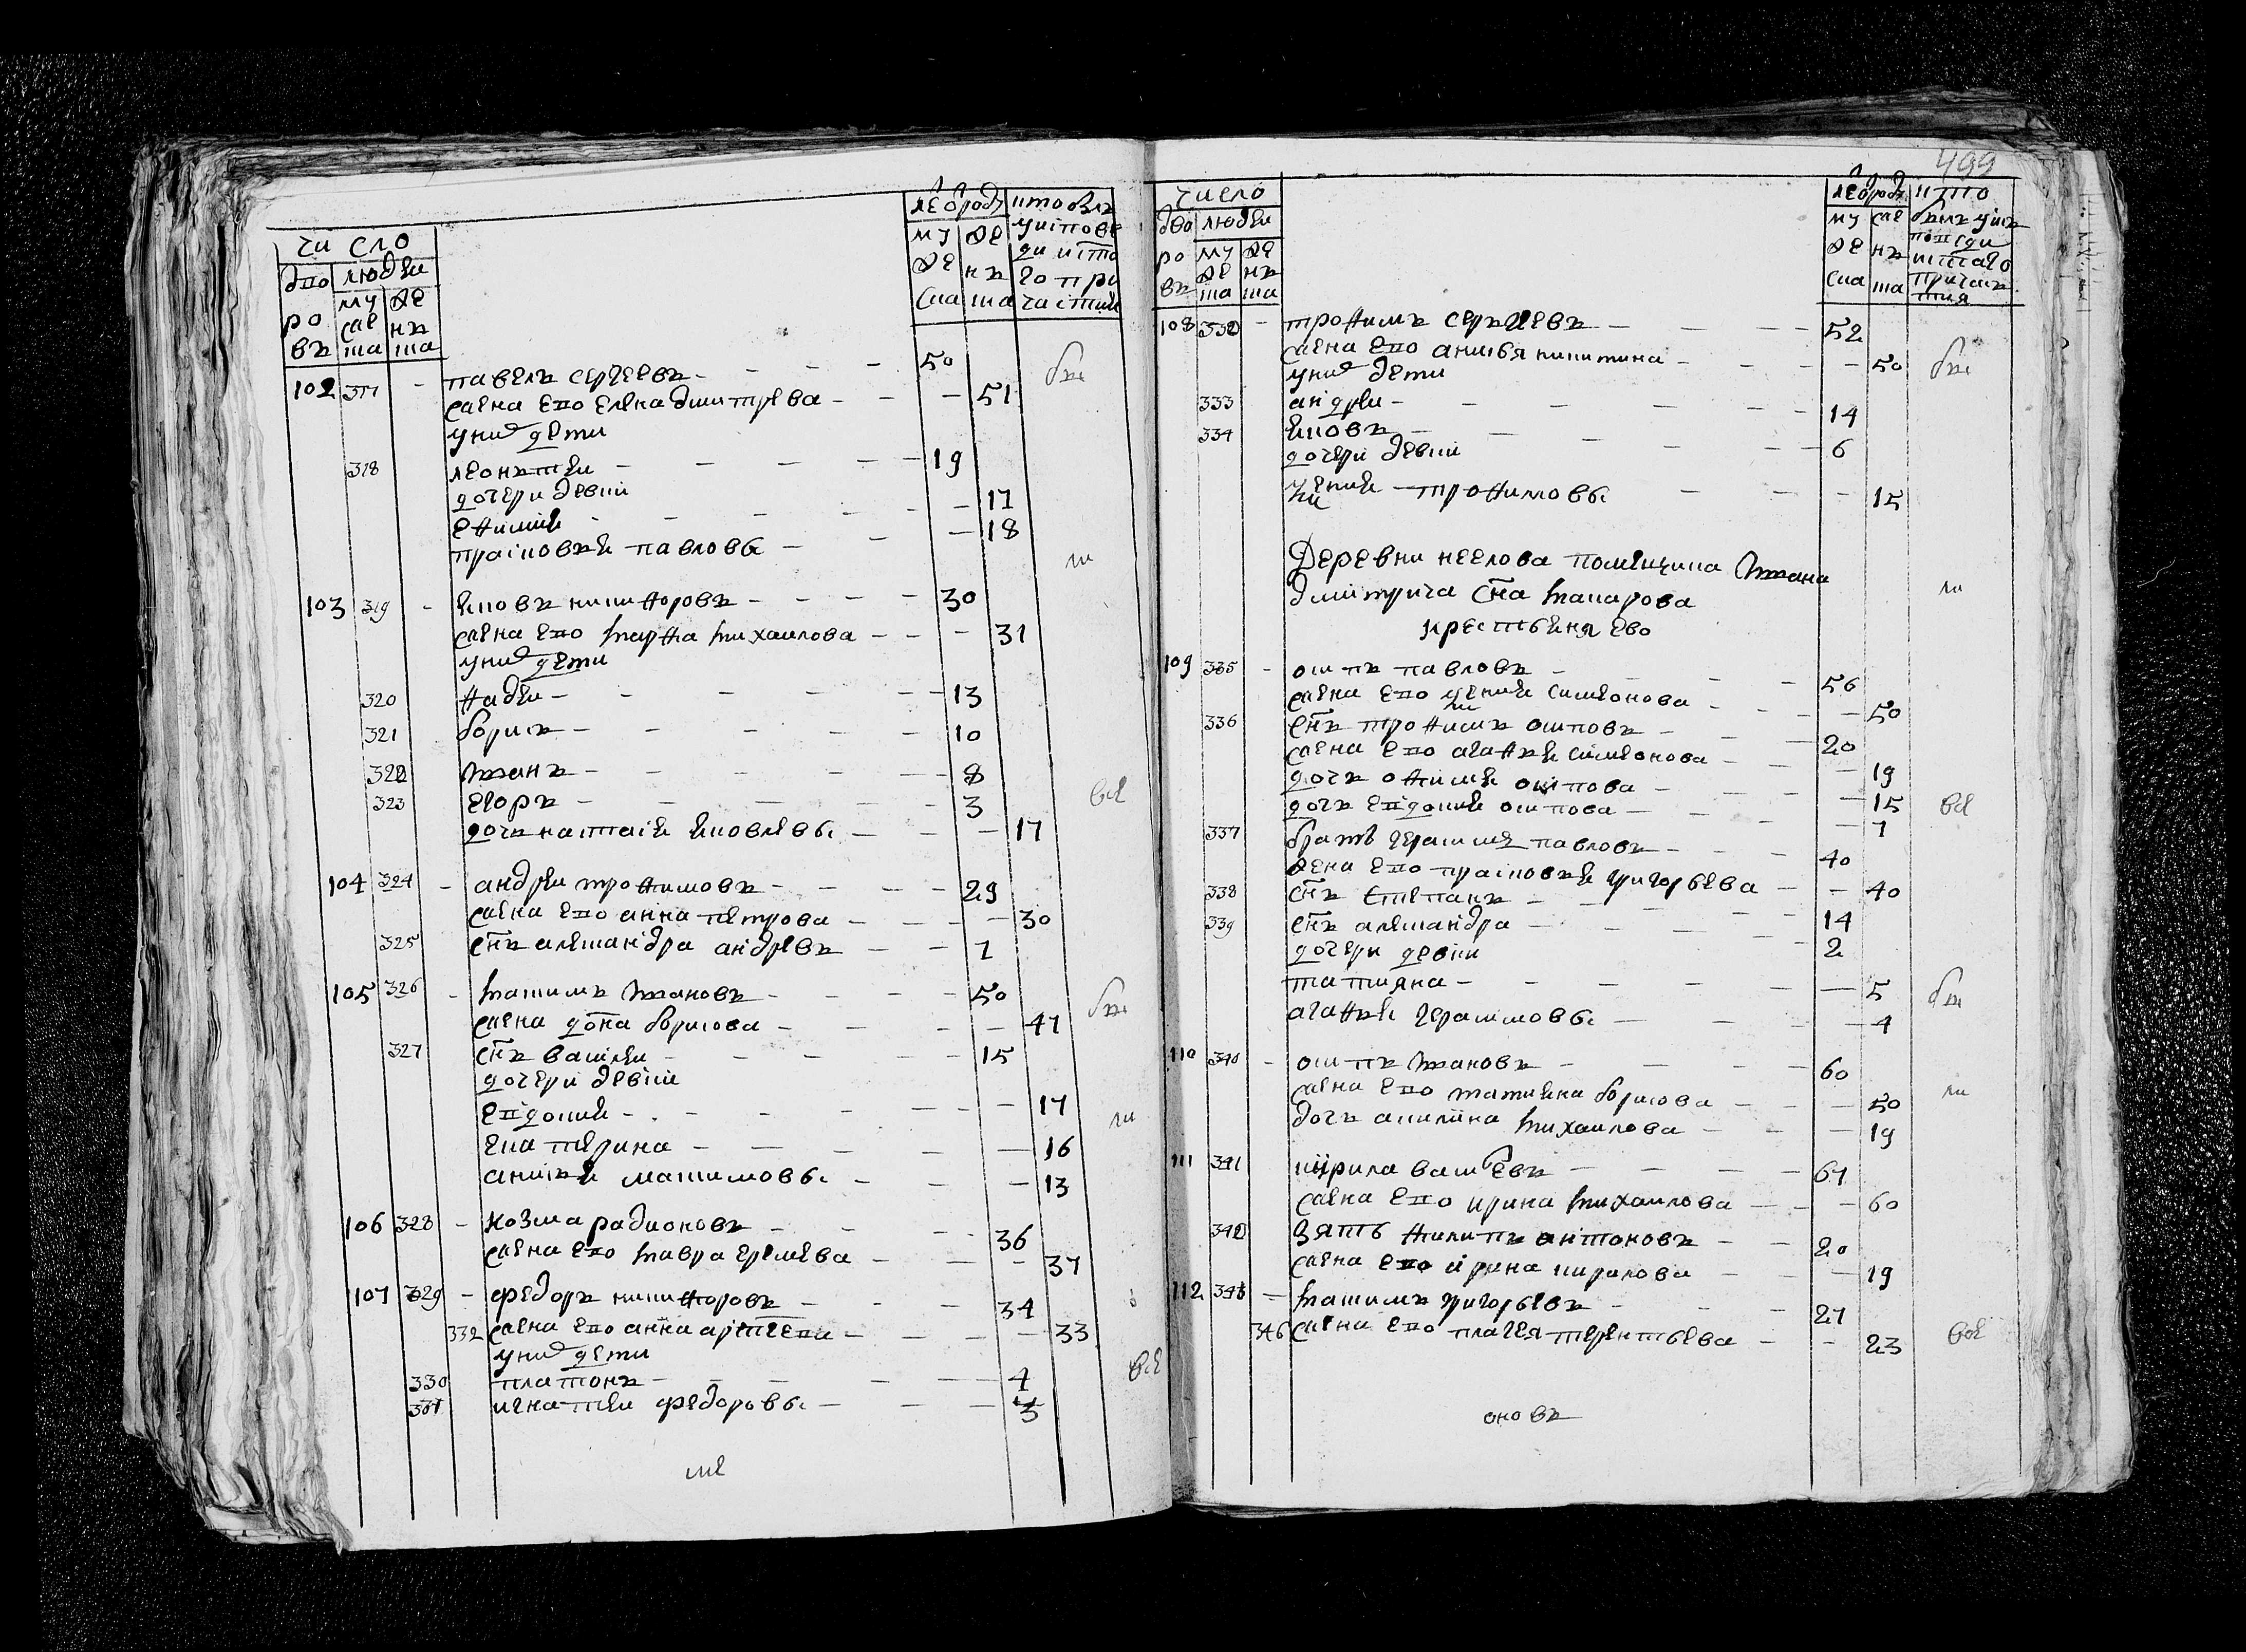 чи сло
дво людеи
ро му же
въ жеска нска
лѣ ѿроду
му же
же нъ
ска ска
кто былъ
у испове
ди и ст͠а
го при
частия
102 317 - павелъ сергеевъ - 50
жена ево елена дмитрѣва - 51
у них дети
318 леонътеи - 19
дочери девки
ефимия - 17
прасковья павловы - 18
103 319 - яковъ никифоровъ - 30
жена ево марфа михаилова - 31
у них дети
320 фадеи - 13
321 борисъ - 10
322 иванъ - 8
323 егоръ - 3
дочь настася яковлевы - 17
104 324 - андреи трофимовъ - 29
жена ево анна петрова - 30
325 сн͠ъ алеѯандра андревъ - 1
105 326 - маѯимъ ивановъ - 50
жена домна борисова - 47
327 сн͠ъ василеи - 15
дочери девки
евдокия - 17
екатерина - 16
анисья маѯимовы - 13
106 328 - козма радионовъ - 36
жена ево мавра еремеева - 37
107 329 - федоръ никифоровъ - 34
332 жена ево анна артеева - 33
у них дети
330 платонъ - 4
331 игнатеи федоровы - 3
499
число
дво людеи
ро му же
въ же нъ
ска ска
лѣ ѿроду
му же
же нъ
ска ска
кто
былъ у испо
веди
и ст͠аго
причас
тия
108 332 - трофимъ сергеевъ - 52
жена ево анисья никитина - 50
у них дети
333 андреи - 14
334 яковъ - 6
дочери девки
ксения трофимовы - 15
Деревни неелова помещика ивана
дмитрича сн͠а макарова
крестьяня ево
109 335 - осипъ павловъ - 56
жена ево ксения симеонова - 50
336 сн͠ъ трофимъ осиповъ - 20
жена ево агафья симеонова - 19
дочь офимия осипова - 15
дочь евдокия осипова - 7
337 братъ герасимъ павловъ - 40
жена ево прасковья григорьева - 40
338 сн͠ъ степанъ - 14
339 сн͠ъ алеѯандра - 2
дочери девки
татияна - 5
агафья герасимовы - 4
110 340 - осипъ ивановъ - 60
жена ево татияна борисова - 50
дочь акилина михаилова - 19
111 341 кирила васильевъ - 67
жена ево ирина михаилова - 60
342 зять филипъ антоновъ - 20
жена ево ирина кирилова - 19
112 343 - маѯимъ григорьевъ - 27
346 жена ево плагея терентьева - 23
оновъ